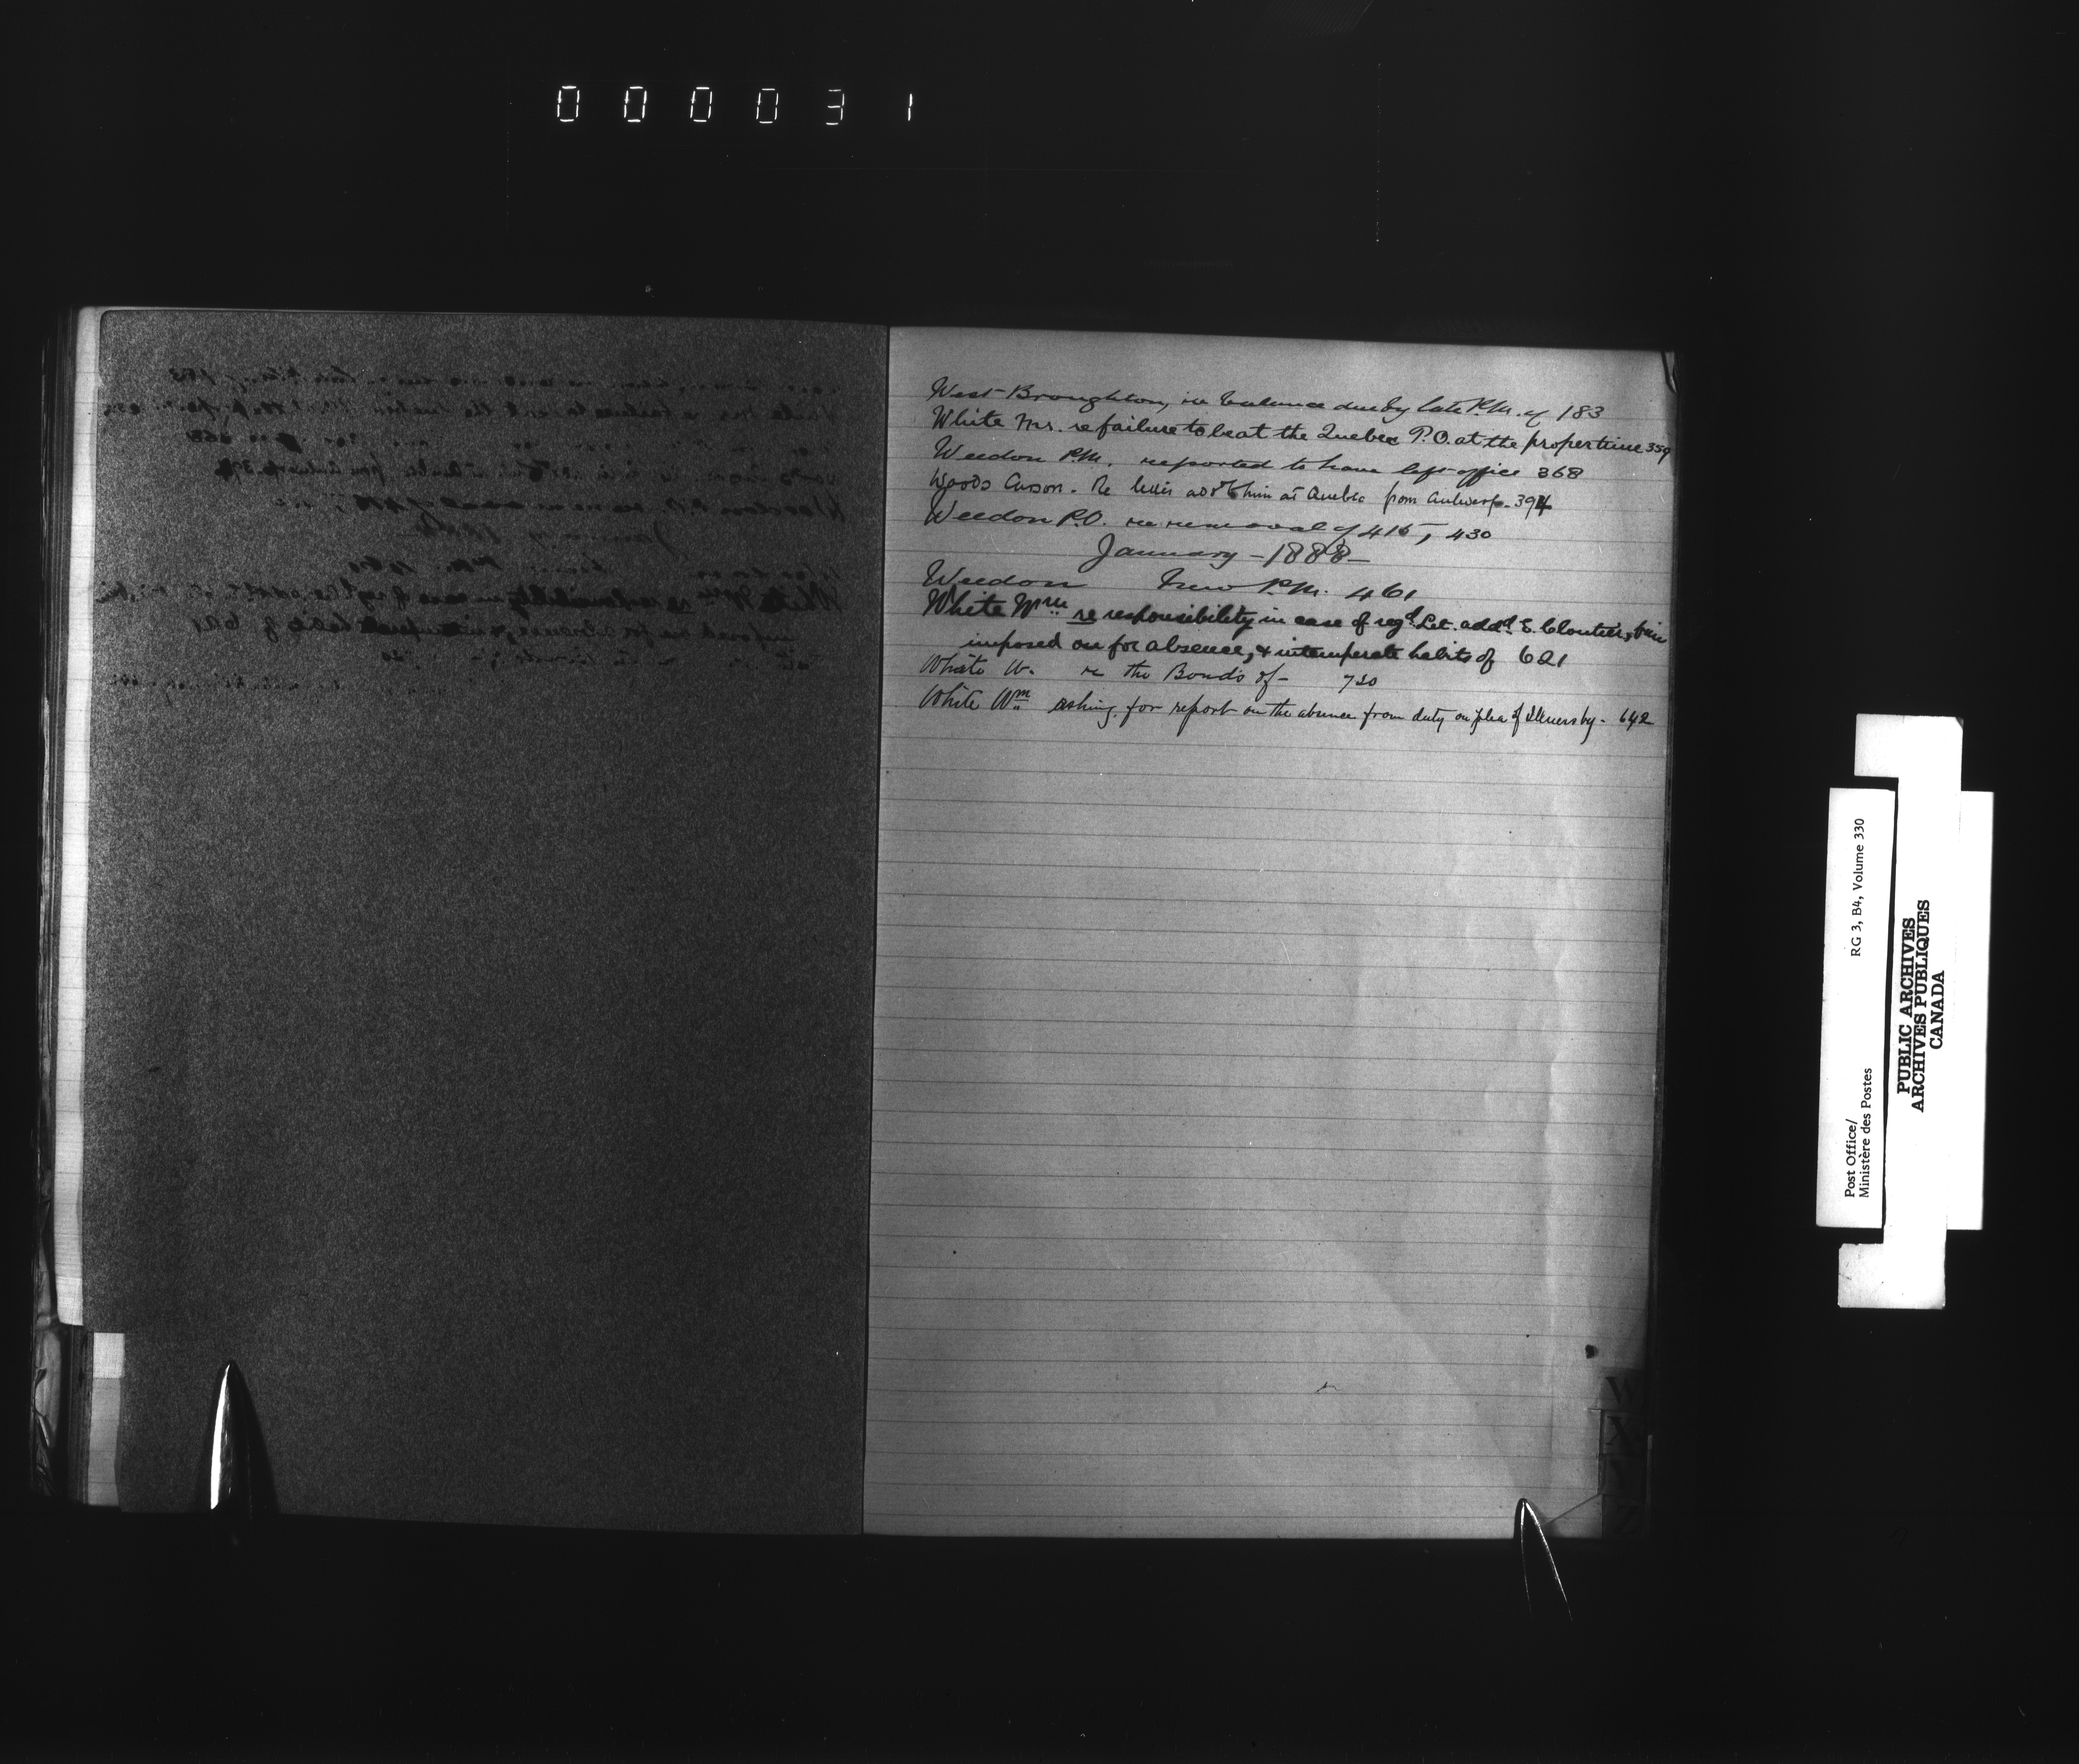 000031
West Broughton, re balance due by late P.M. of 183
White Mr. re failure to be at the Quebec P.O. at the proper time 359
Weedon P.M. reported to have left office 368
Woods Carson. Re letter add'd to him at Quebec from Antwerp. 394
Weedon P.O. re removal of 415, 430
January - 1888 -
Weedon New P.M. 461
White Wm re responsibility in case of reg'd Let. add'd E. Cloutier, fine
imposed on for absence, & intemperate habits of 621
White W. re the Bonds of - 720
White Wm asking for report on the absence from duty on plea of illness by - 642
W
X
Y
Z
Post Office/
Ministère des Postes
RG 3, B4, Volume 330
PUBLIC ARCHIVES
ARCHIVES PUBLIQUES
CANADA